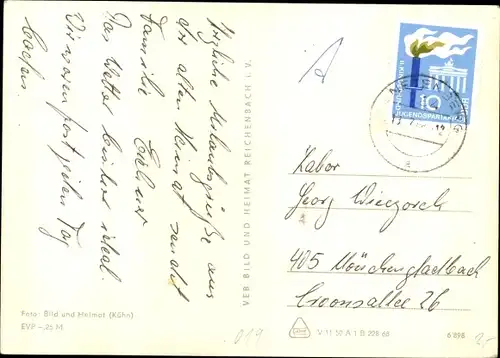 Herzliche Urlaubsgrüße aus
der alten Heimat sendet
Familie
Das Wetter bisher ideal.
Wir waren fast jeden Tag
baden.
Foto: Bild und Heimat (Kühn)
EVP -,25 M.
VEB BILD UND HEIMAT REICHENBACH i. V.
10
JUGENDSPARTAKIADE
Labor
Georg Wieczorek
405 Mönchengladbach
Croonsallee 26
V 11 50 A 1 B 228 68
6 898